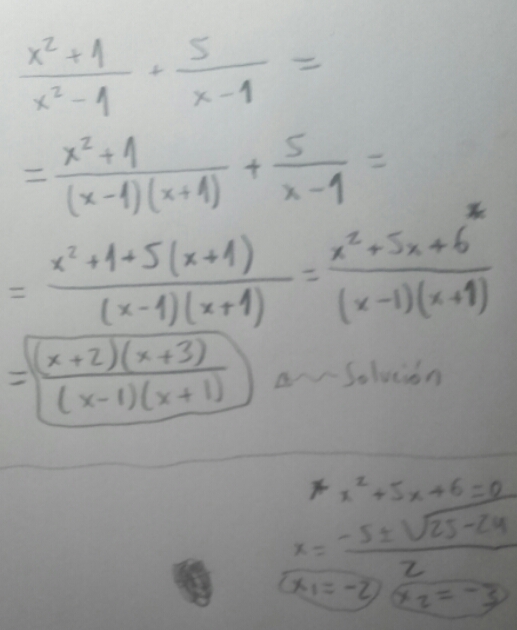 x² + 1 / x² - 1 + 5 / x - 1 =
= x² + 1 / (x - 1)(x + 1) + 5 / x - 1 =
= x² + 1 + 5(x + 1) / (x - 1)(x + 1) = x² + 5x + 6* / (x - 1)(x + 1)
= (x + 2)(x + 3) / (x - 1)(x + 1) Solución
* x² + 5x + 6 = 0
x = -5 ± √25 - 24 / 2
x₁ = -2 x₂ = -3